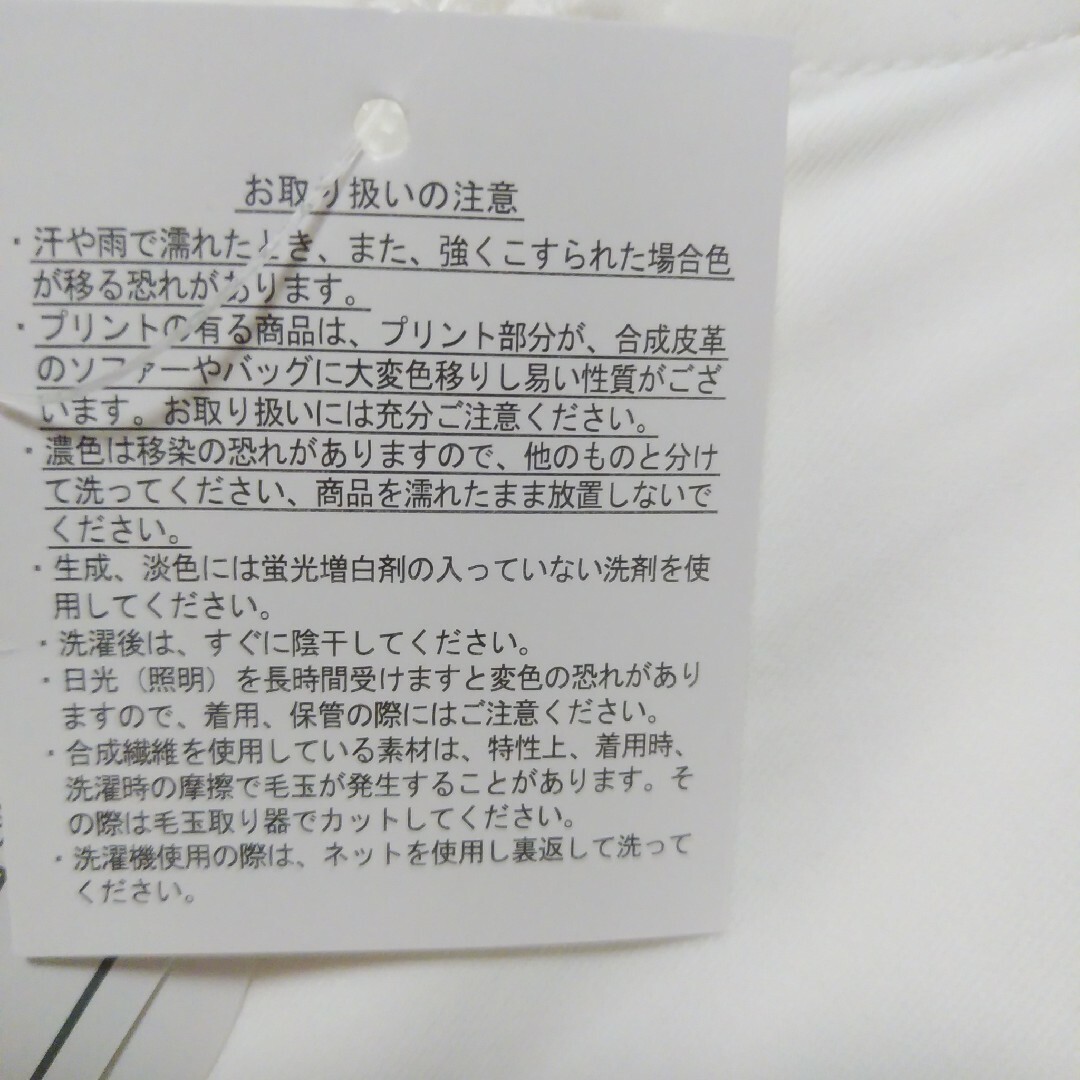 お取り扱いの注意
・汗や雨で濡れたとき、また、強くこすられた場合色
が移る恐れがあります。
・プリントの有る商品は、プリント部分が、合成皮革
のソファーやバッグに大変色移りし易い性質がござ
います。お取り扱いには充分ご注意ください。
・濃色は移染の恐れがありますので、他のものと分け
て洗ってください、商品を濡れたまま放置しないで
ください。
・生成、淡色には蛍光増白剤の入っていない洗剤を使
用してください。
・洗濯後は、すぐに陰干してください。
・日光（照明）を長時間受けますと変色の恐れがあり
ますので、着用、保管の際にはご注意ください。
・合成繊維を使用している素材は、特性上、着用時、
洗濯時の摩擦で毛玉が発生することがあります。そ
の際は毛玉取り器でカットしてください。
・洗濯機使用の際は、ネットを使用し裏返して洗って
ください。